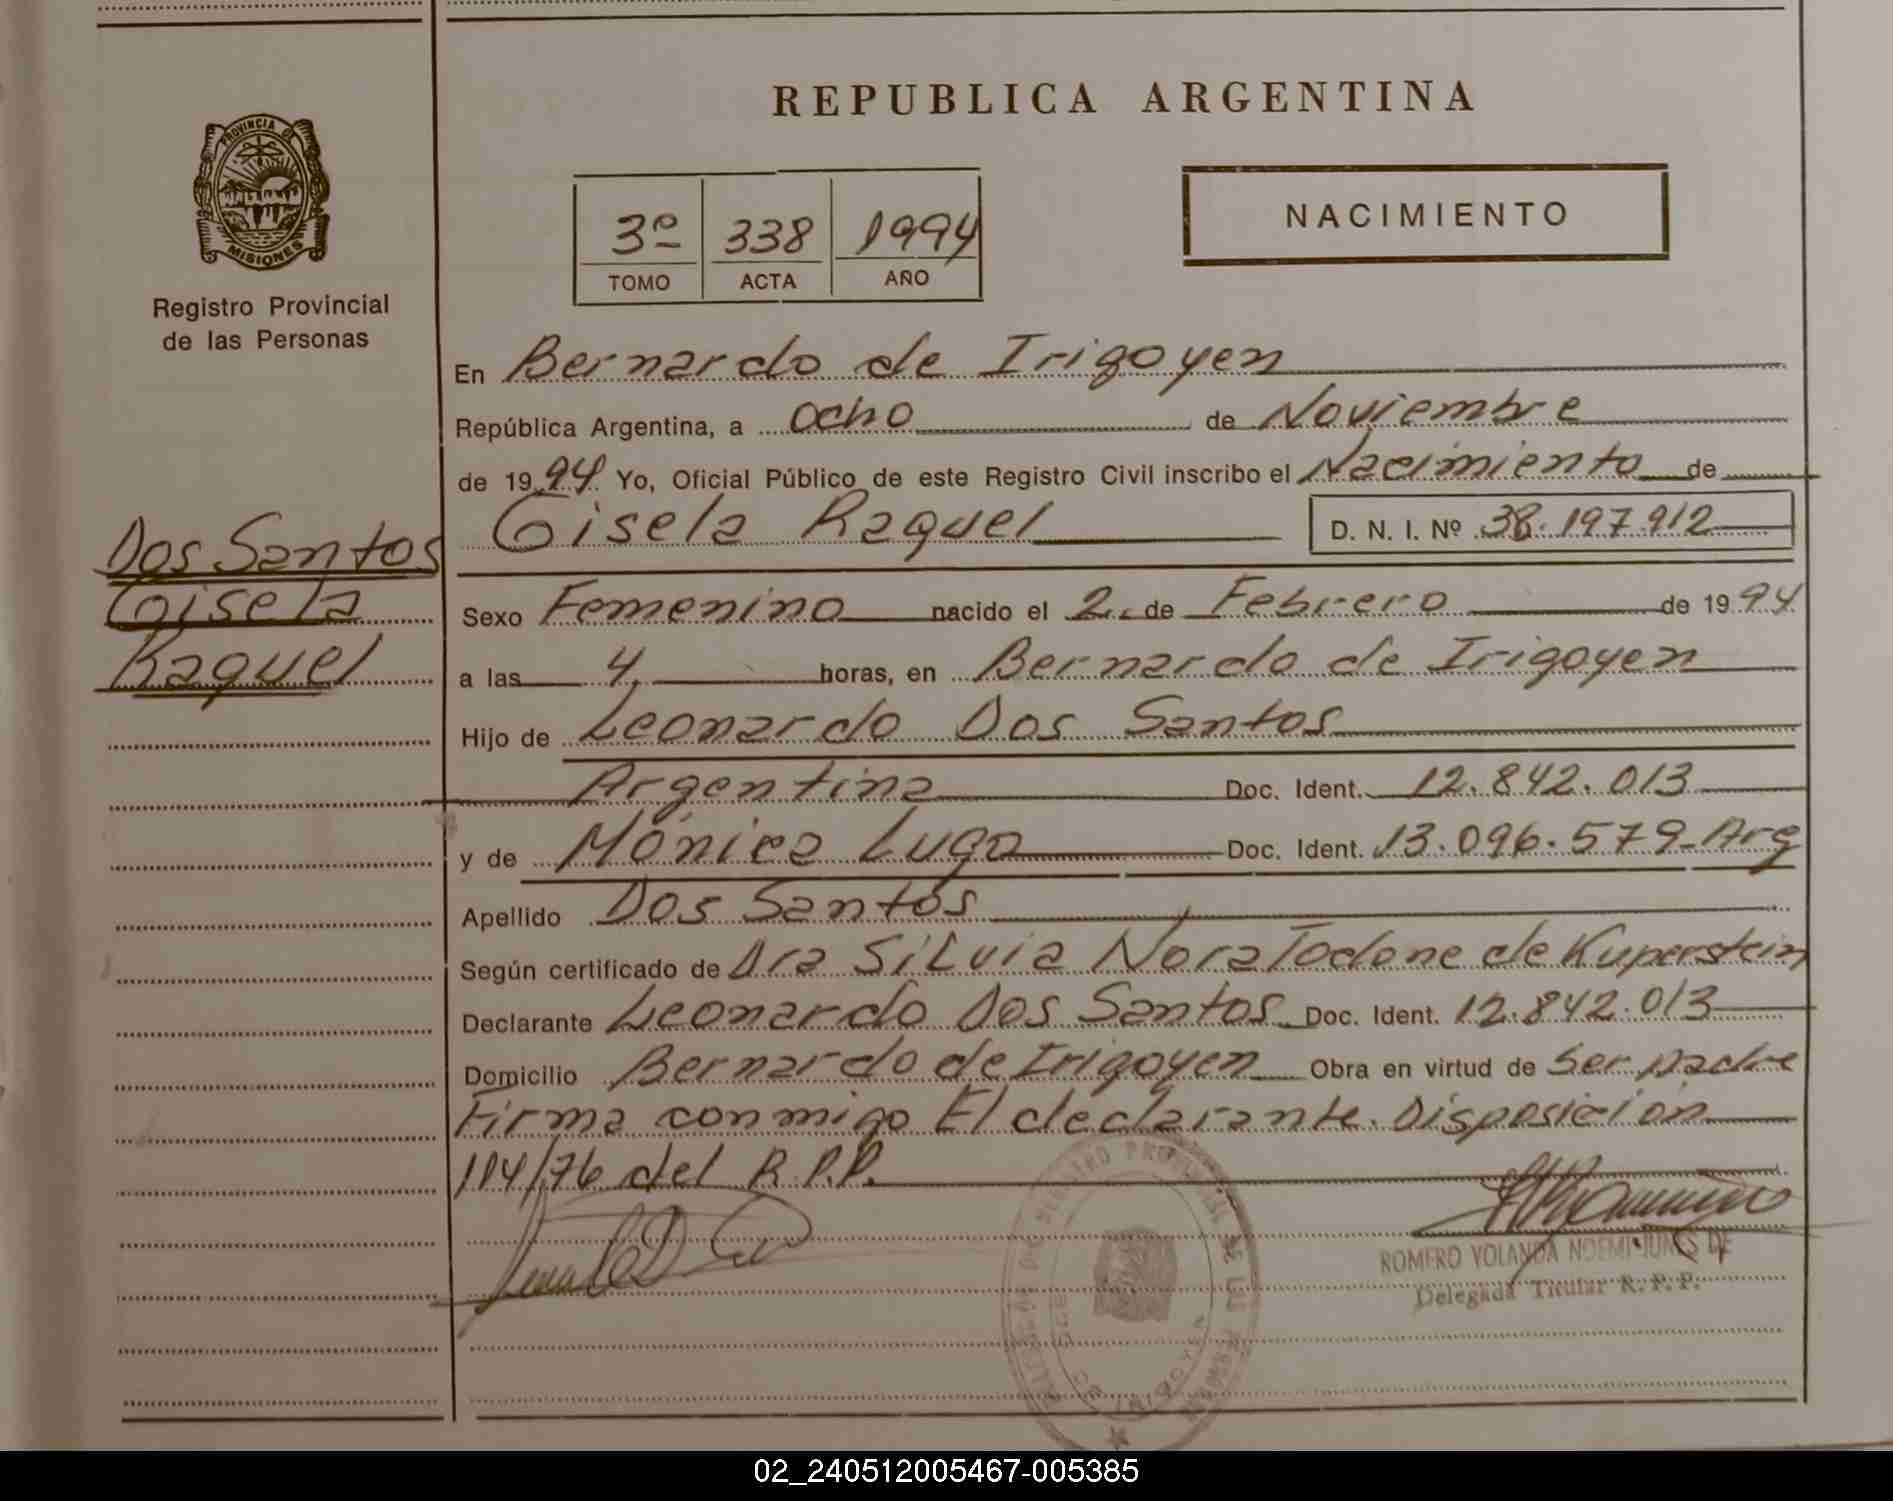 REPUBLICA ARGENTINA
PROVINCIA DE
MISIONES
Registro Provincial
de las Personas
3º 338 1994
TOMO ACTA AÑO
NACIMIENTO
En Bernardo de Irigoyen
República Argentina, a ocho de Noviembre
de 1994 Yo, Oficial Público de este Registro Civil inscribo el Nacimiento de
Gisela Raquel D. N. I. Nº 38.197.912
Dos Santos
Gisela
Raquel
Sexo Femenino nacido el 2 de Febrero de 1994
a las 4 horas, en Bernardo de Irigoyen
Hijo de Leonardo Dos Santos
Argentina Doc. Ident. 12.842.013
y de Mónica Lugo Doc. Ident. 13.096.579 Arg
Apellido Dos Santos
Según certificado de Dra Silvia Nora Todone de Kuperstein
Declarante Leonardo Dos Santos Doc. Ident. 12.842.013
Domicilio Bernardo de Irigoyen Obra en virtud de Ser padre
Firma conmigo El declarante. Disposición
114/76 del R.P.P.
ROMERO YOLANDA NOEMI JUNES DE
Delegada Titular R. P. P.
02_240512005467-005385